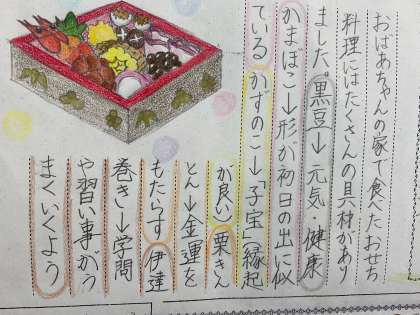 おばあちゃんの家で食べたおせち
料理にはたくさんの具材があり
ました。黒豆→元気・健康
かまぼこ→形が初日の出に似
ている かずのこ→子宝(縁起
が良い)栗きん
とん→金運を
もたらす 伊達
巻き→学問
や習い事がう
まくいくよう